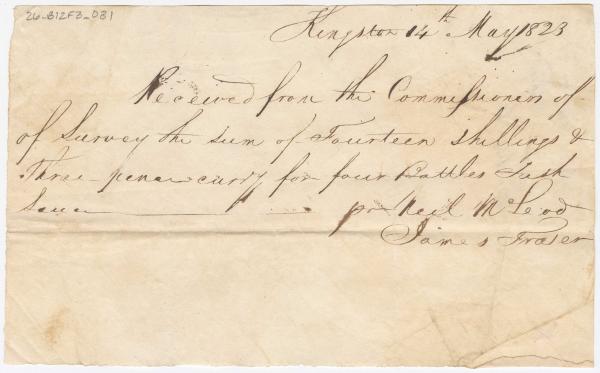 26-B12F3-081
Kingston 14th May 1823
Received from the Commissioners of
of Survey the sum of Fourteen shillings &
Three-pence curry for four Bottles Fish
Sauce
pr Neil McLeod
James Fraser